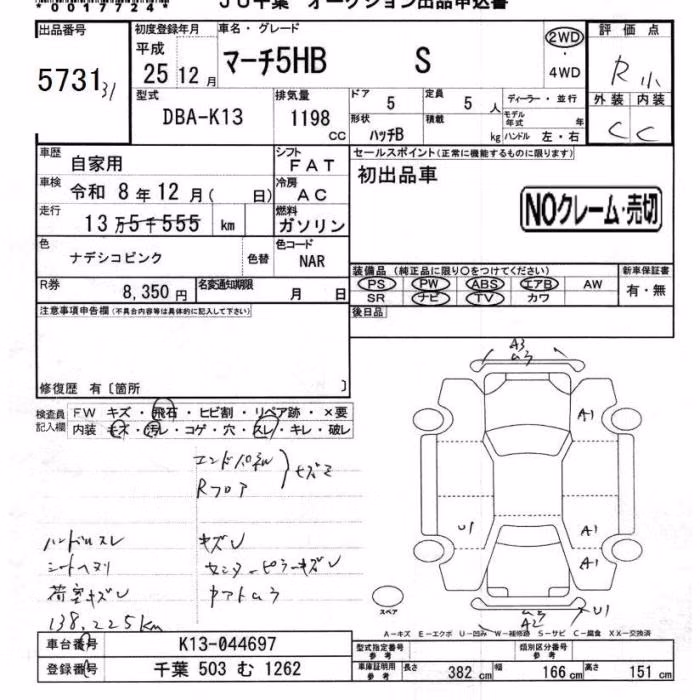 *0017724*
JU千葉 オークション出品申込書
出品番号
5731 31
初度登録年月
平成
25 12 月
車名・グレード
マーチ5HB S
2WD
・
4WD
評価点
R 小
外装 内装
C C
型式
DBA-K13
排気量
1198 CC
ドア
5
定員
5 人
形状
ハッチB
積載
kg
ディーラー・並行
モデル年式 年
ハンドル 左・右
車歴
自家用
シフト
FAT
車検
令和 8年 12月( 日)
冷房
AC
走行
13万5千555 km
燃料
ガソリン
色
ナデシコピンク
色替
色コード
NAR
セールスポイント(正常に機能するものに限ります)
初出品車
NOクレーム・売切
R券
8,350 円
名変通知期限
月 日
装備品 (純正品に限り○をつけてください)
PS PW ABS エアB AW
SR ナビ TV カワ
新車保証書
有・無
後日品
注意事項申告欄(不具合内容等は具体的に記入して下さい)
修復歴 有〔箇所 〕
検査員記入欄
FW キズ・飛石・ヒビ割・リペア跡・×要
内装 キズ・汚レ・コゲ・穴・スレ・キレ・破レ
Rフロア
ハンドルスレ
キズU
シートヘタリ
センターピラーキズU
荷室キズU
138,225km
A3
ムラ
A1
U1
A1
A1
ムラ
A2
U1
スペア
A-キズ E-エクボ U-凹み W-補修跡 S-サビ C-腐食 XX-交換済
車台番号
K13-044697
登録番号
千葉 503 む 1262
型式指定番号
参考
類別区分番号
参考
車庫証明用
参考
長さ 382 cm 幅 166 cm 高さ 151 cm